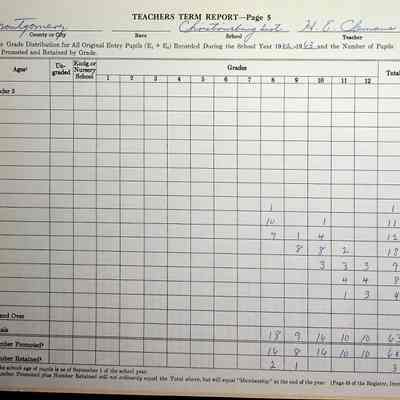 TEACHERS TERM REPORT—Page 5
Montgomery Christiansburg Inst. H. E. Clemons
County or City Race School Teacher
Grade Distribution for All Original Entry Pupils (E1 + E2) Recorded During the School Year 1962-1963 and the Number of Pupils
Promoted and Retained by Grade.
Ages1 Un-graded Kndg or Nursery School Grades Total
1 2 3 4 5 6 7 8 9 10 11 12
Under 5
1 1
10 1 11
7 1 4 12
8 8 2 18
3 3 3 9
4 4 8
1 3 4
and Over
18 9 16 10 10 63
Number Promoted2 16 8 16 10 10 60
Number Retained2 2 1 3
school age of pupils is as of September 1 of the school year.
Number Promoted plus Number Retained will not ordinarily equal the Total above, but will equal "Membership" at the end of the year.